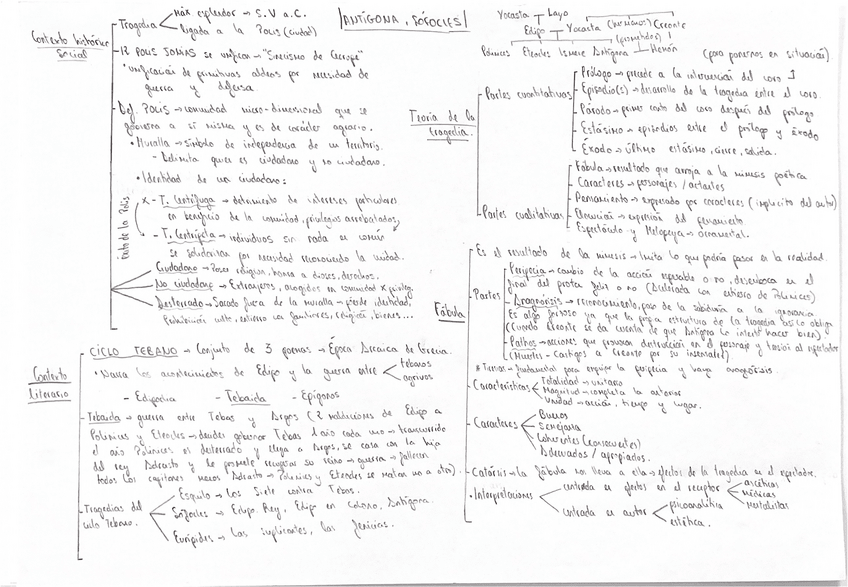 ANTÍGONA, SÓFOCLES
Contexto histórico
social
Tragedia
Máx esplendor → S.V a.C.
Ligada a la Polis (ciudad)
12 POLIS JONIAS se unifican → "Sinecismo de Cecrope"
unificación de primitivas aldeas por necesidad de
guerra y defensa.
Def. POLIS → comunidad micro-dimensional que se
gobierna a sí misma y es de carácter agrario.
• Muralla → símbolo de independencia de un territorio.
- Delimita quien es ciudadano y no ciudadano.
• Identidad de un ciudadano:
x - T. Centrífuga → detrimento de intereses particulares
en beneficio de la comunidad, privilegios arrebatados,
- T. Centrípeta → individuos sin nada en común
se solidarizan por necesidad reconociendo la unidad.
Ciudadano → Posee religión, honra a dioses, derechos.
No ciudadano → Extranjeros, acogidos en comunidad x privileg.
Desterrado → Sacado fuera de la muralla → pierde identidad,
prohibición culto, entierro en familiares, religión, bienes...
Contexto
literario
CICLO TEBANO → Conjunto de 3 poemas → Época Arcaica de Grecia.
• Narra los acontecimientos de Edipo y la guerra entre
tebanos
argivos
- Edipodia - Tebaida - Epígonos
Tebaida → guerra entre Tebas y Argos (2 maldiciones de Edipo a
Polinices y Eteocles → deciden gobernar Tebas 1 año cada uno → transcurrido
el año Polinices es desterrado y llega a Argos, se casa con la hija
del rey Adrasto y le promete recuperar su reino → guerra → fallecen
todos los capitanes menos Adrasto → Polinices y Eteocles se matan uno a otro)
Tragedias del
ciclo Tebano.
Esquilo → Los Siete contra Tebas.
Sófocles → Edipo Rey, Edipo en Colono, Antígona.
Eurípides → Las suplicantes, las fenicias.
Yocasta Layo
(hermanos) Creonte
Edipo Yocasta
(prometidos)
Polinices Eteocles Ismene Antígona Hemón (para ponernos en situación).
Teoría de la
tragedia.
Partes cuantitativas
Prólogo → precede a la intervención del coro 1
Episodio(s) → desarrollo de la tragedia entre el coro.
Párodo → primer canto del coro después del prólogo
Estásimo → episodios entre el prólogo y éxodo
Éxodo → último estásimo, cierre, salida.
Partes cualitativas
Fábula → resultado que arroja a la mimesis poética
Caracteres → personajes / actantes
Pensamiento → expresado por caracteres (implícito del autor)
Elocución → expresión del pensamiento.
Espectáculo y Melopeya → ornamental.
Fábula
Es el resultado de la mimesis → imita lo que podría pasar en la realidad.
Partes
Peripecia → cambio de la acción esperable o no, desemboca en el
final del prota feliz o no (
Anagnórisis → reconocimiento, paso de la sabiduría a la ignorancia
Es algo penoso ya que la propia estructura de la tragedia así lo obliga
(Cuando Creonte se da cuenta de que Antígona lo intentó hacer bien)
Pathos → acciones que provocan destrucción en el personaje y tensión al espectador
(Muertes - Castigos a Creonte por su insensatez)
fundamental para empujar la peripecia y haya anagnórisis.
Características
Totalidad → unitario
Magnitud → completa la anterior
Unidad → acción, tiempo y lugar.
Caracteres
Buenos
Semejanza
Coherentes (consecuentes)
Adecuados / apropiados.
Catarsis → la fábula nos lleva a ella → efectos de la tragedia en el espectador.
• Interpretaciones
centrada en efectos en el receptor
ascéticas
médicas
mentalistas
centrada en autor
psicoanalítica
estética.